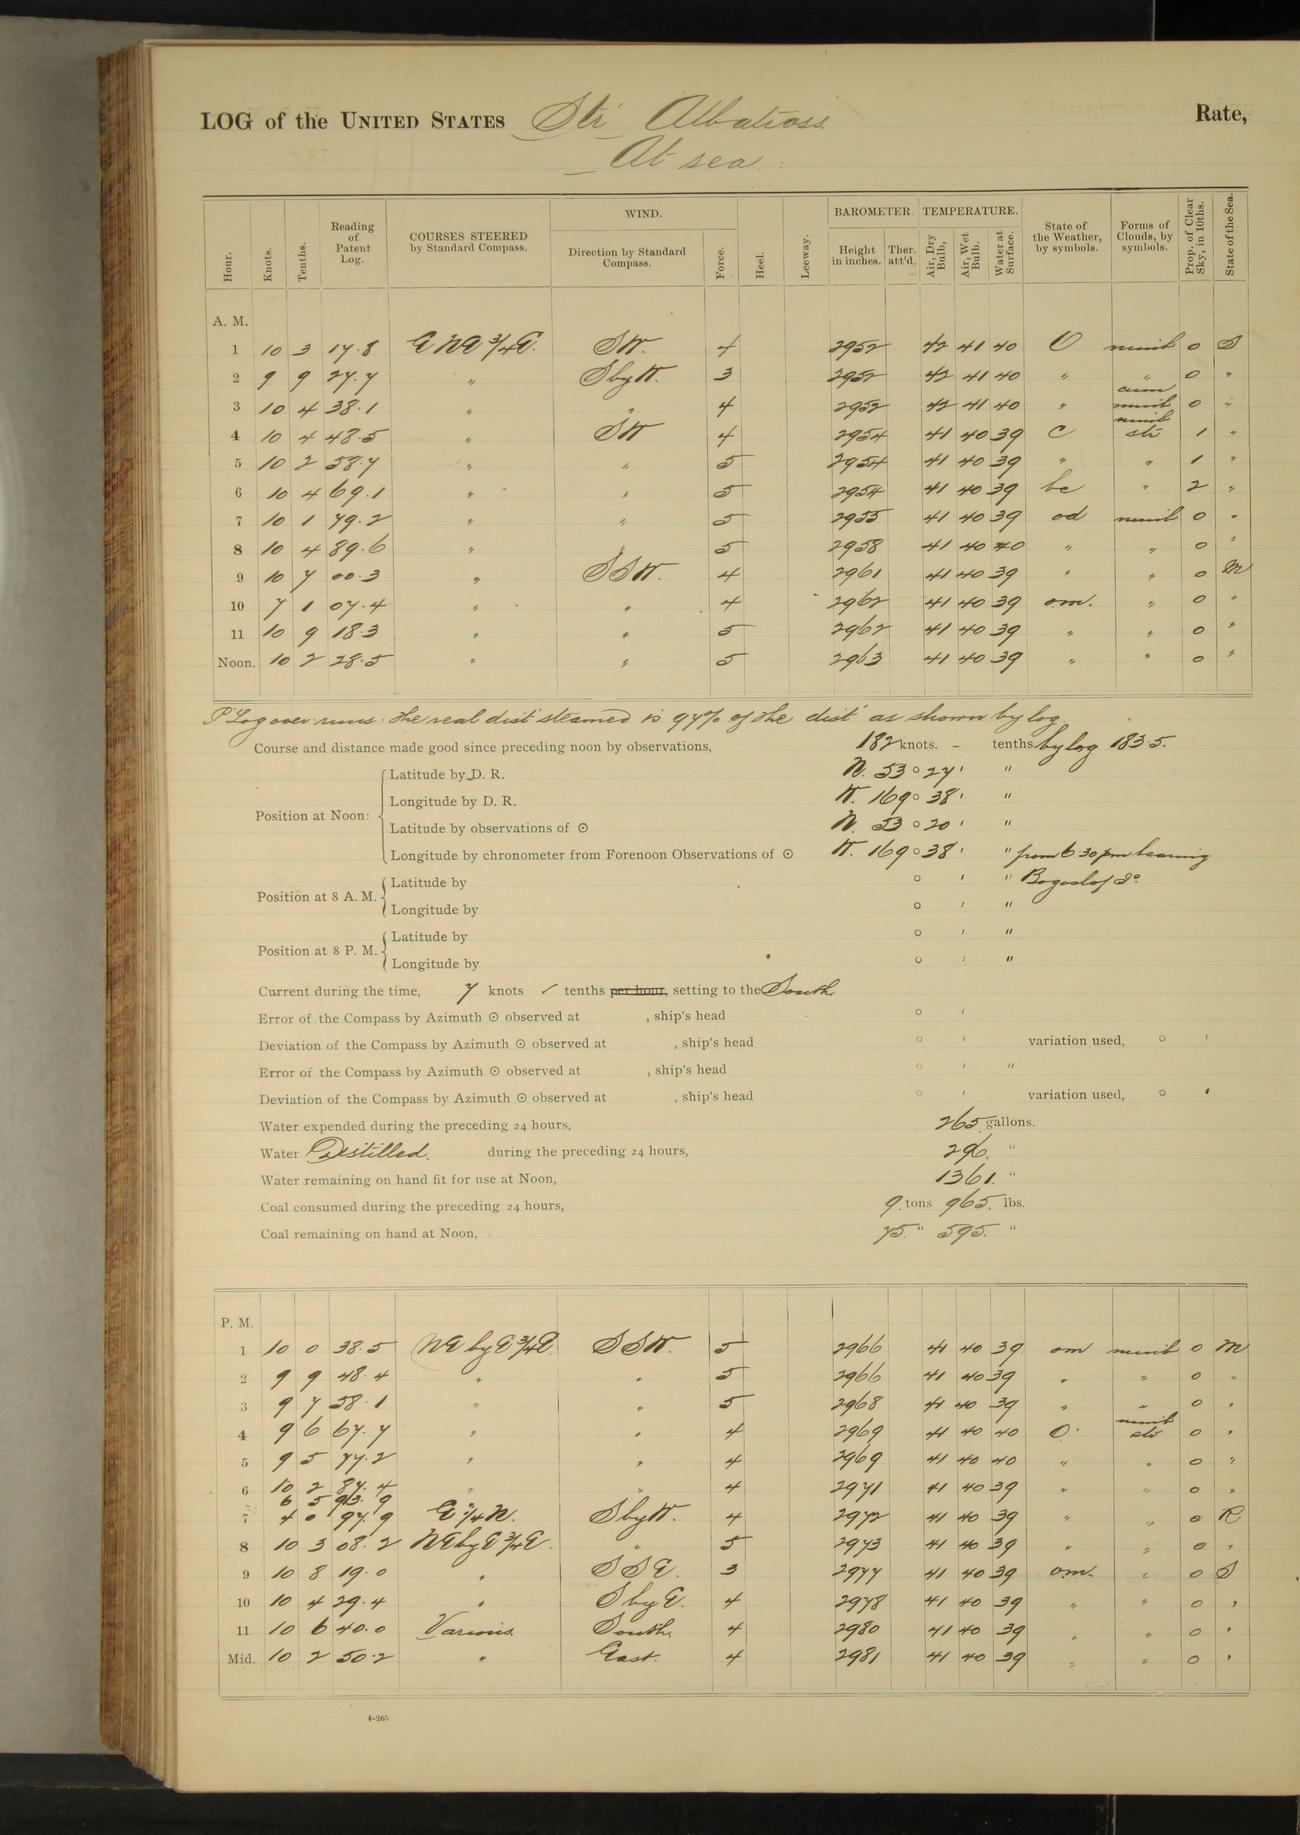 LOG of the UNITED STATES Str Albatross Rate,
At sea.
Hour. Knots. Tenths. Reading of Patent Log. COURSES STEERED by Standard Compass. WIND. Direction by Standard Compass. Force. Heel. Leeway. BAROMETER. Height in inches. Ther. att'd. TEMPERATURE. Air, Dry Bulb, Air, Wet Bulb. Water at Surface. State of the Weather, by symbols. Forms of Clouds, by symbols. Prop. of Clear Sky, in 10ths. State of the Sea.
A. M.
1 10 3 17.8 E NE 3/4 E. SW. 4 2952 42 41 40 O nimb 0 S
2 9 9 27.7 " S by W. 3 2952 42 41 40 " " 0 "
3 10 4 38.1 " " 4 2952 42 41 40 " cum nimb 0 "
4 10 4 48.5 " SW 4 2954 41 40 39 C nimb str 1 "
5 10 2 58.7 " " 5 2954 41 40 39 " " 1 "
6 10 4 69.1 " " 5 2954 41 40 39 bc " 2 "
7 10 1 79.2 " " 5 2955 41 40 39 od nimb 0 "
8 10 4 89.6 " " 5 2958 41 40 40 " " 0 "
9 10 7 00.3 " SSW. 4 2961 41 40 39 " " 0 M
10 7 1 07.4 " " 4 2962 41 40 39 om. " 0 "
11 10 9 18.3 " " 5 2962 41 40 39 " " 0 "
Noon. 10 2 28.5 " " 5 2963 41 40 39 " " 0 "
P. Log over runs: the real dist steamed is 97% of the dist as shown by log
Course and distance made good since preceding noon by observations, 182 knots. – tenths by log 183.5.
Position at Noon: Latitude by D. R. N. 53 ° 27 ' "
Longitude by D. R. W. 169 ° 38 ' "
Latitude by observations of ⊙ N. 53 ° 20 ' "
Longitude by chronometer from Forenoon Observations of ⊙ W. 169 ° 38 ' " from 6.30 pm bearing
Position at 8 A. M. Latitude by ° ' " Bogoslof Id.
Longitude by ° ' "
Position at 8 P. M. Latitude by ° ' "
Longitude by ° ' "
Current during the time, 7 knots tenths per hour, setting to the South
Error of the Compass by Azimuth ⊙ observed at , ship's head ° '
Deviation of the Compass by Azimuth ⊙ observed at , ship's head ° ' variation used, ° '
Error of the Compass by Azimuth ⊙ observed at , ship's head ° ' "
Deviation of the Compass by Azimuth ⊙ observed at , ship's head ° ' variation used, ° '
Water expended during the preceding 24 hours, 265 gallons.
Water Distilled. during the preceding 24 hours, 296. "
Water remaining on hand fit for use at Noon, 1361. "
Coal consumed during the preceding 24 hours, 9. tons 965. lbs.
Coal remaining on hand at Noon, 75. " 595. "
P. M.
1 10 0 38.5 NE by E 3/4 E. SSW. 5 2966 41 40 39 om nimb 0 M
2 9 9 48.4 " " 5 2966 41 40 39 " " 0 "
3 9 7 58.1 " " 5 2968 41 40 39 " " 0 "
4 9 6 67.7 " " 4 2969 41 40 40 O nimb str 0 "
5 9 5 77.2 " " 4 2969 41 40 40 " " 0 "
6 10 2 87.4 " " 4 2971 41 40 39 " " 0 "
6 5 93.9
7 4 0 97.9 E 3/4 N. S by W. 4 2972 41 40 39 " " 0 R
8 10 3 08.2 NE by E 3/4 E. " 5 2973 41 40 39 " " 0 "
9 10 8 19.0 " SSE. 3 2977 41 40 39 om. " 0 S
10 10 4 29.4 " S by E. 4 2978 41 40 39 " " 0 "
11 10 6 40.0 Various. South. 4 2980 41 40 39 " " 0 "
Mid. 10 2 50.2 " East. 4 2981 41 40 39 " " 0 "
4-265